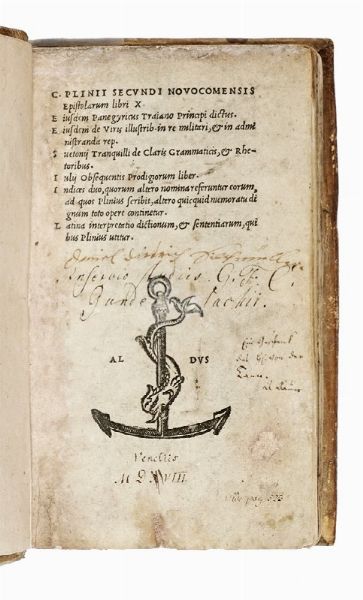 C. PLINII SECVNDI NOVOCOMENSIS
Epistolarum libri X.
E iusdem Panegyricus Traiano Principi dictus.
E iusdem de Viris illustrib. in re militari, & in admi
nistranda rep.
S uetonij Tranquilli de Claris Grammaticis, & Rhe-
toribus.
I ulij Obsequentis Prodigiorum liber.
I ndices duo, quorum altero nomina referuntur eorum,
ad quos Plinius scribit, altero quicquid memoratu di
gnum toto opere continetur.
L atina interpretatio dictionum, & sententiarum, qui
bus Plinius utitur.
Inservio
G. C.
AL DVS
Venetiis
M D XVIII
Vide pag 525